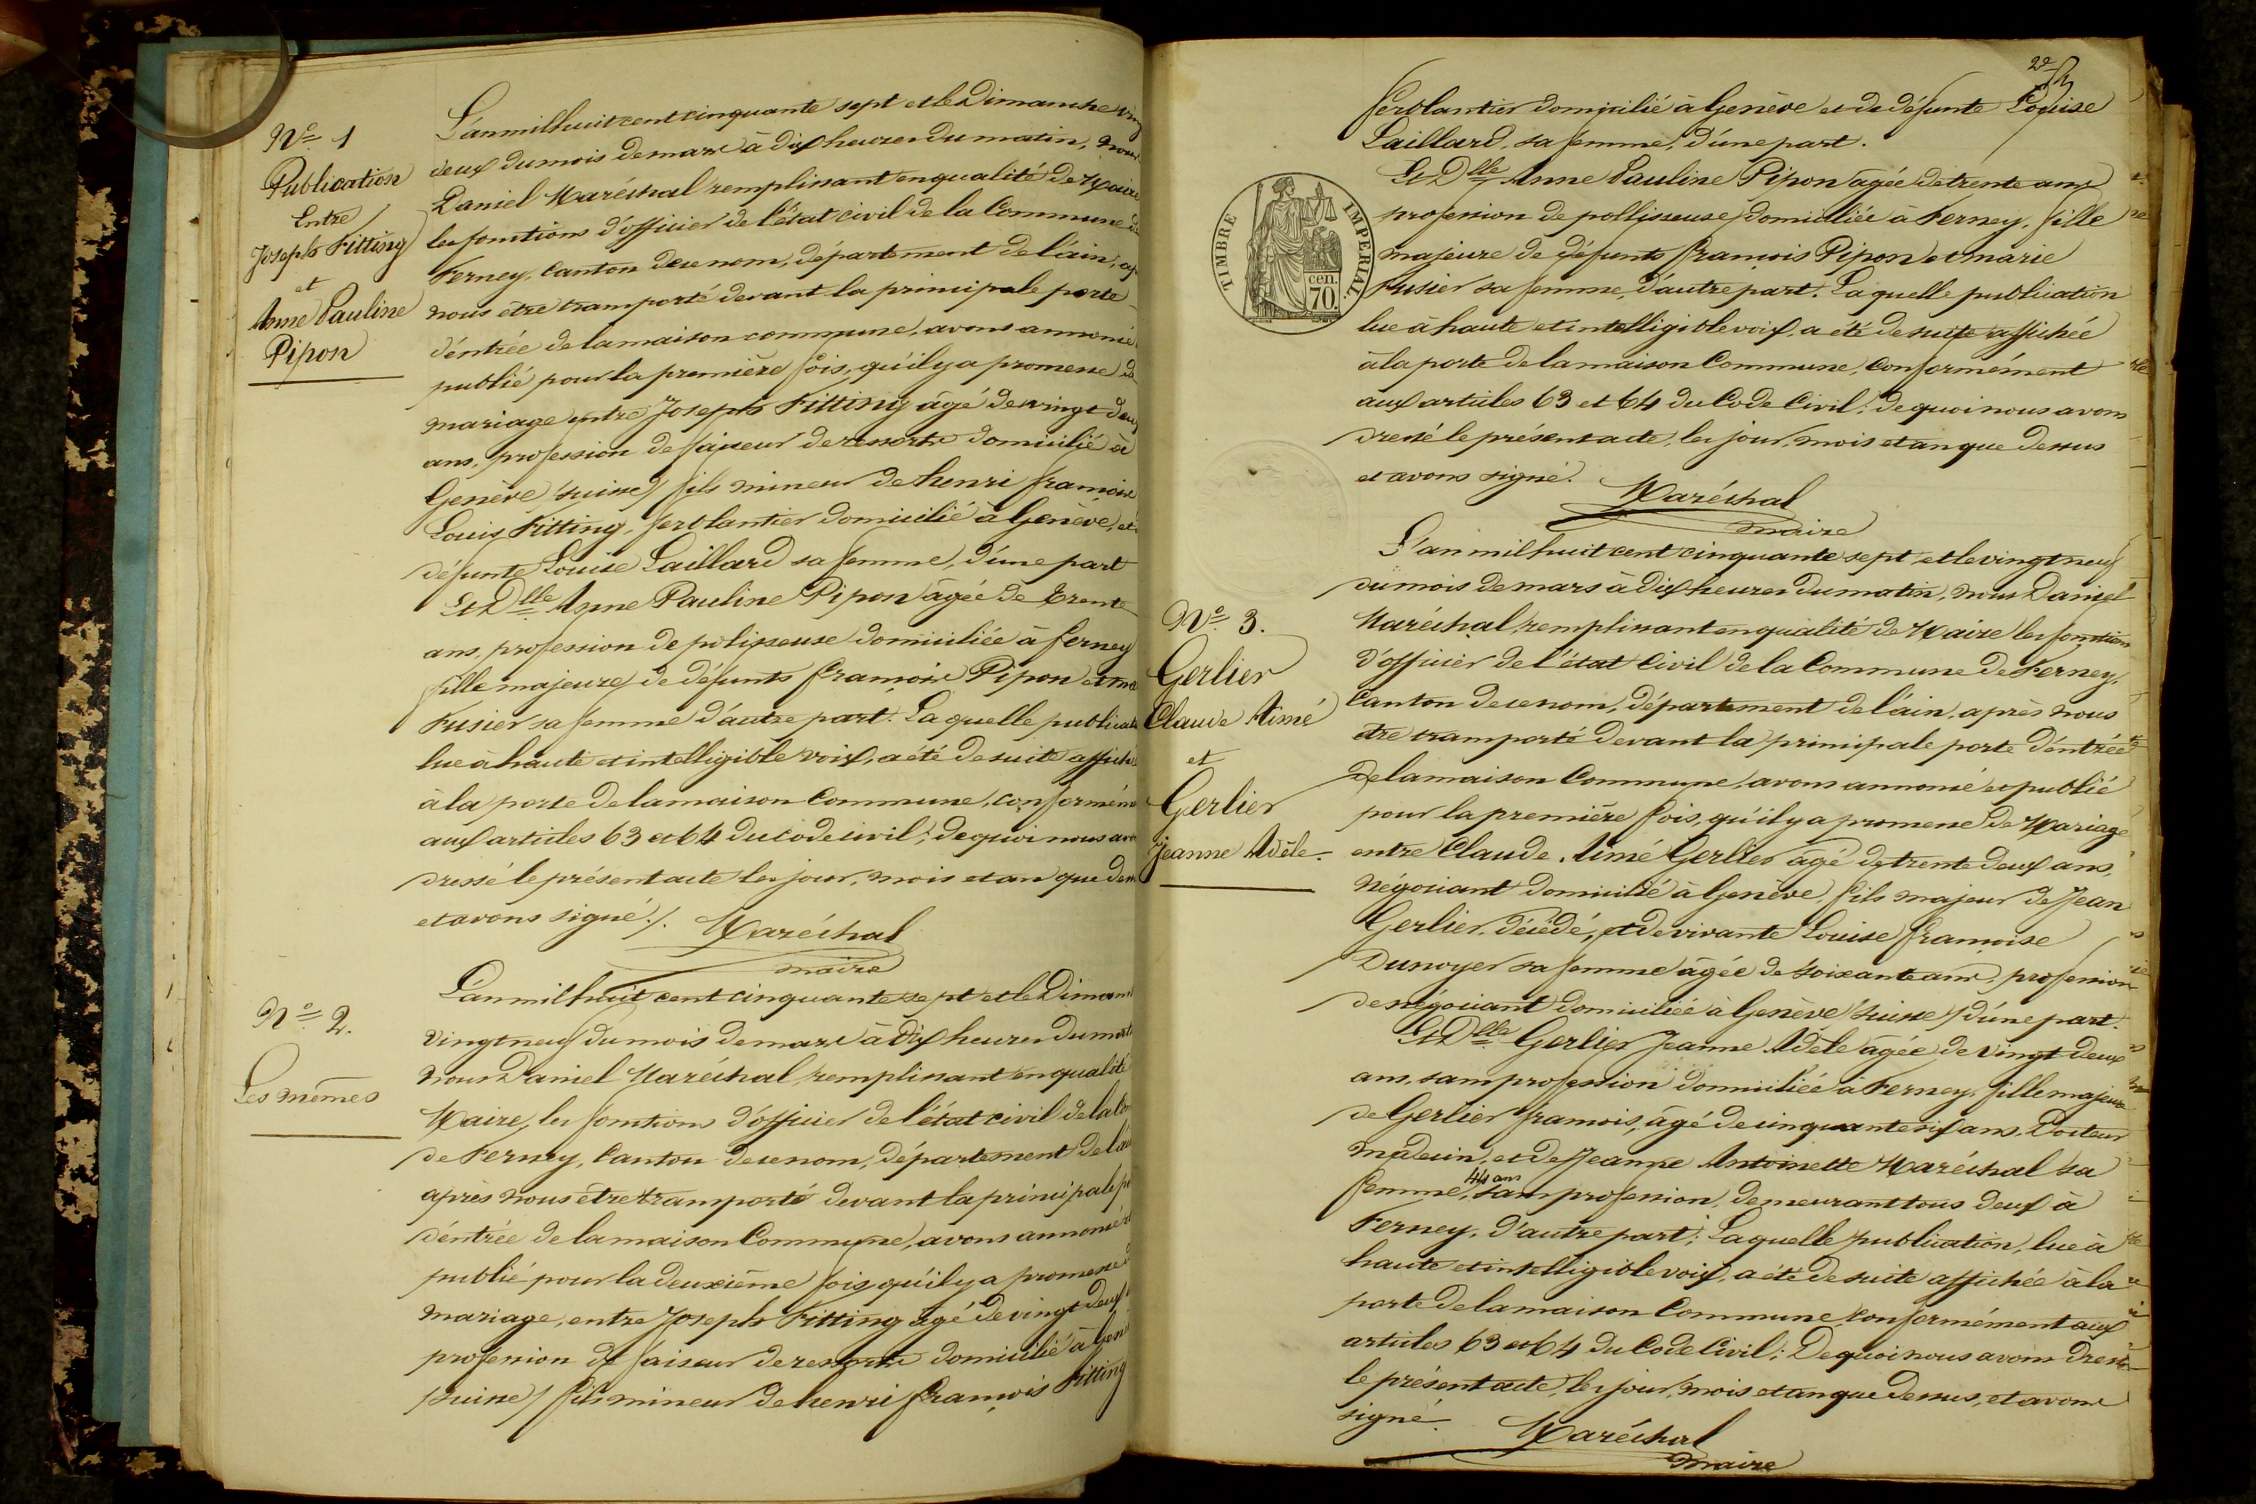 N° 1
Publication
Entre
Joseph Fitting
et
Anne Pauline
Pipon
L'an mil huit cent cinquante sept et le Dimanche ving
deux du mois de mars à dix heures du matin, nous
Daniel Maréchal remplissant en qualité de Maire
les fonctions d'officier de l'état civil de la Commune de
Ferney, Canton de ce nom, département de l'ain, ap
nous être transporté devant la principale porte
d'entrée de la maison commune, avons annoncé
publié pour la première fois, qu'il y a promesse de
mariage entre Joseph Fitting âgé de vingt deux
ans, profession de faiseur de ressorts domicilié à
Genève (suisse) fils mineur de henri françois
Louis Fitting, ferblantier domicilié à Genève, et
défunte Louise Laillard sa femme, d'une part
Et Dlle Anne Pauline Pipon âgée de trente
ans, profession de polisseuse domiciliée à ferney
fille majeure de défunts françois Pipon et ma
Fusier sa femme d'autre part. La quelle publicati
lue à haute et intelligible voix, a été de suite affiché
à la porte de la maison Commune, conformém
aux articles 63 et 64 du code civil; de quoi nous avo
dressé le présent acte les jour, mois et an que dess
et avons signé /.
Maréchal
maire
N° 2.
Les mêmes
L'an mil huit cent cinquante sept et le Dimanc
vingt neuf du mois de mars à Dix heures du mati
nous Daniel Maréchal remplissant en qualité
Maire, les fonctions d'officier de l'état civil de la Co
de Ferney, Canton de ce nom, département de l'ai
après nous être transporté devant la principale po
d'entrée de la maison Commune, avons annoncé
publié pour la deuxième fois qu'il y a promesse d
mariage, entre Joseph Fitting âgé de vingt deux
profession de faiseur de ressorts domicilié à Gen
(suisse) fils mineur de henri françois Fitting
2e
ferblantier domicilié à Genève et de défunte Louise
Laillard, sa femme, d'une part.
Et Dlle Anne Pauline Pipon âgée de trente ans
profession de pollisseuse domiciliée à Ferney, fille
majeure de défunts françois Pipon et marie
Fusier sa femme, d'autre part. La quelle publication
lue à haute et intelligible voix, a été de suite affichée
à la porte de la maison Commune, conformément
aux articles 63 et 64 du Code Civil; de quoi nous avons
dressé le présent acte, les jour, mois et an que dessus
et avons signé.
Maréchal
maire
TIMBRE IMPERIAL.
cen.
70
N° 3.
Gerlier
Claude Aimé
et
Gerlier
jeanne Adèle.
L'an mil huit cent cinquante sept, et le vingt neuf
du mois de mars à dix heures du matin, nous Daniel
Maréchal, remplissant en qualité de Maire les fonctions
d'officier de l'état Civil de la Commune de Ferney,
Canton de ce nom, département de l'ain, après nous
être transporté devant la principale porte d'entrée
de la maison Commune, avons annoncé et publié
pour la première fois, qu'il y a promesse de Mariage
entre Claude Aimé Gerlier âgé de trente deux ans,
négociant domicilié à Genève, fils majeur de Jean
Gerlier, décédé, et de vivante Louise françoise
Dunoyer sa femme âgée de soixante ans, profession
de négociant domiciliée à Genève (suisse) d'une part.
Et Dlle Gerlier Jeanne Adèle âgée de vingt deux
ans, sans profession domiciliée à Ferney, fille majeure
de Gerlier françois, âgé de cinquante six ans, Docteur
médecin, et de Jeanne Antoinette Maréchal sa
femme, 44 ans sans profession, demeurant tous deux à
Ferney, d'autre part; Laquelle publication, lue à
haute et intelligible voix, a été de suite affichée à la
porte de la maison Commune conformément aux
articles 63 et 64 du Code Civil; De quoi nous avons dressé
le présent acte, les jour, mois et an que dessus, et avons
signé.
Maréchal
maire